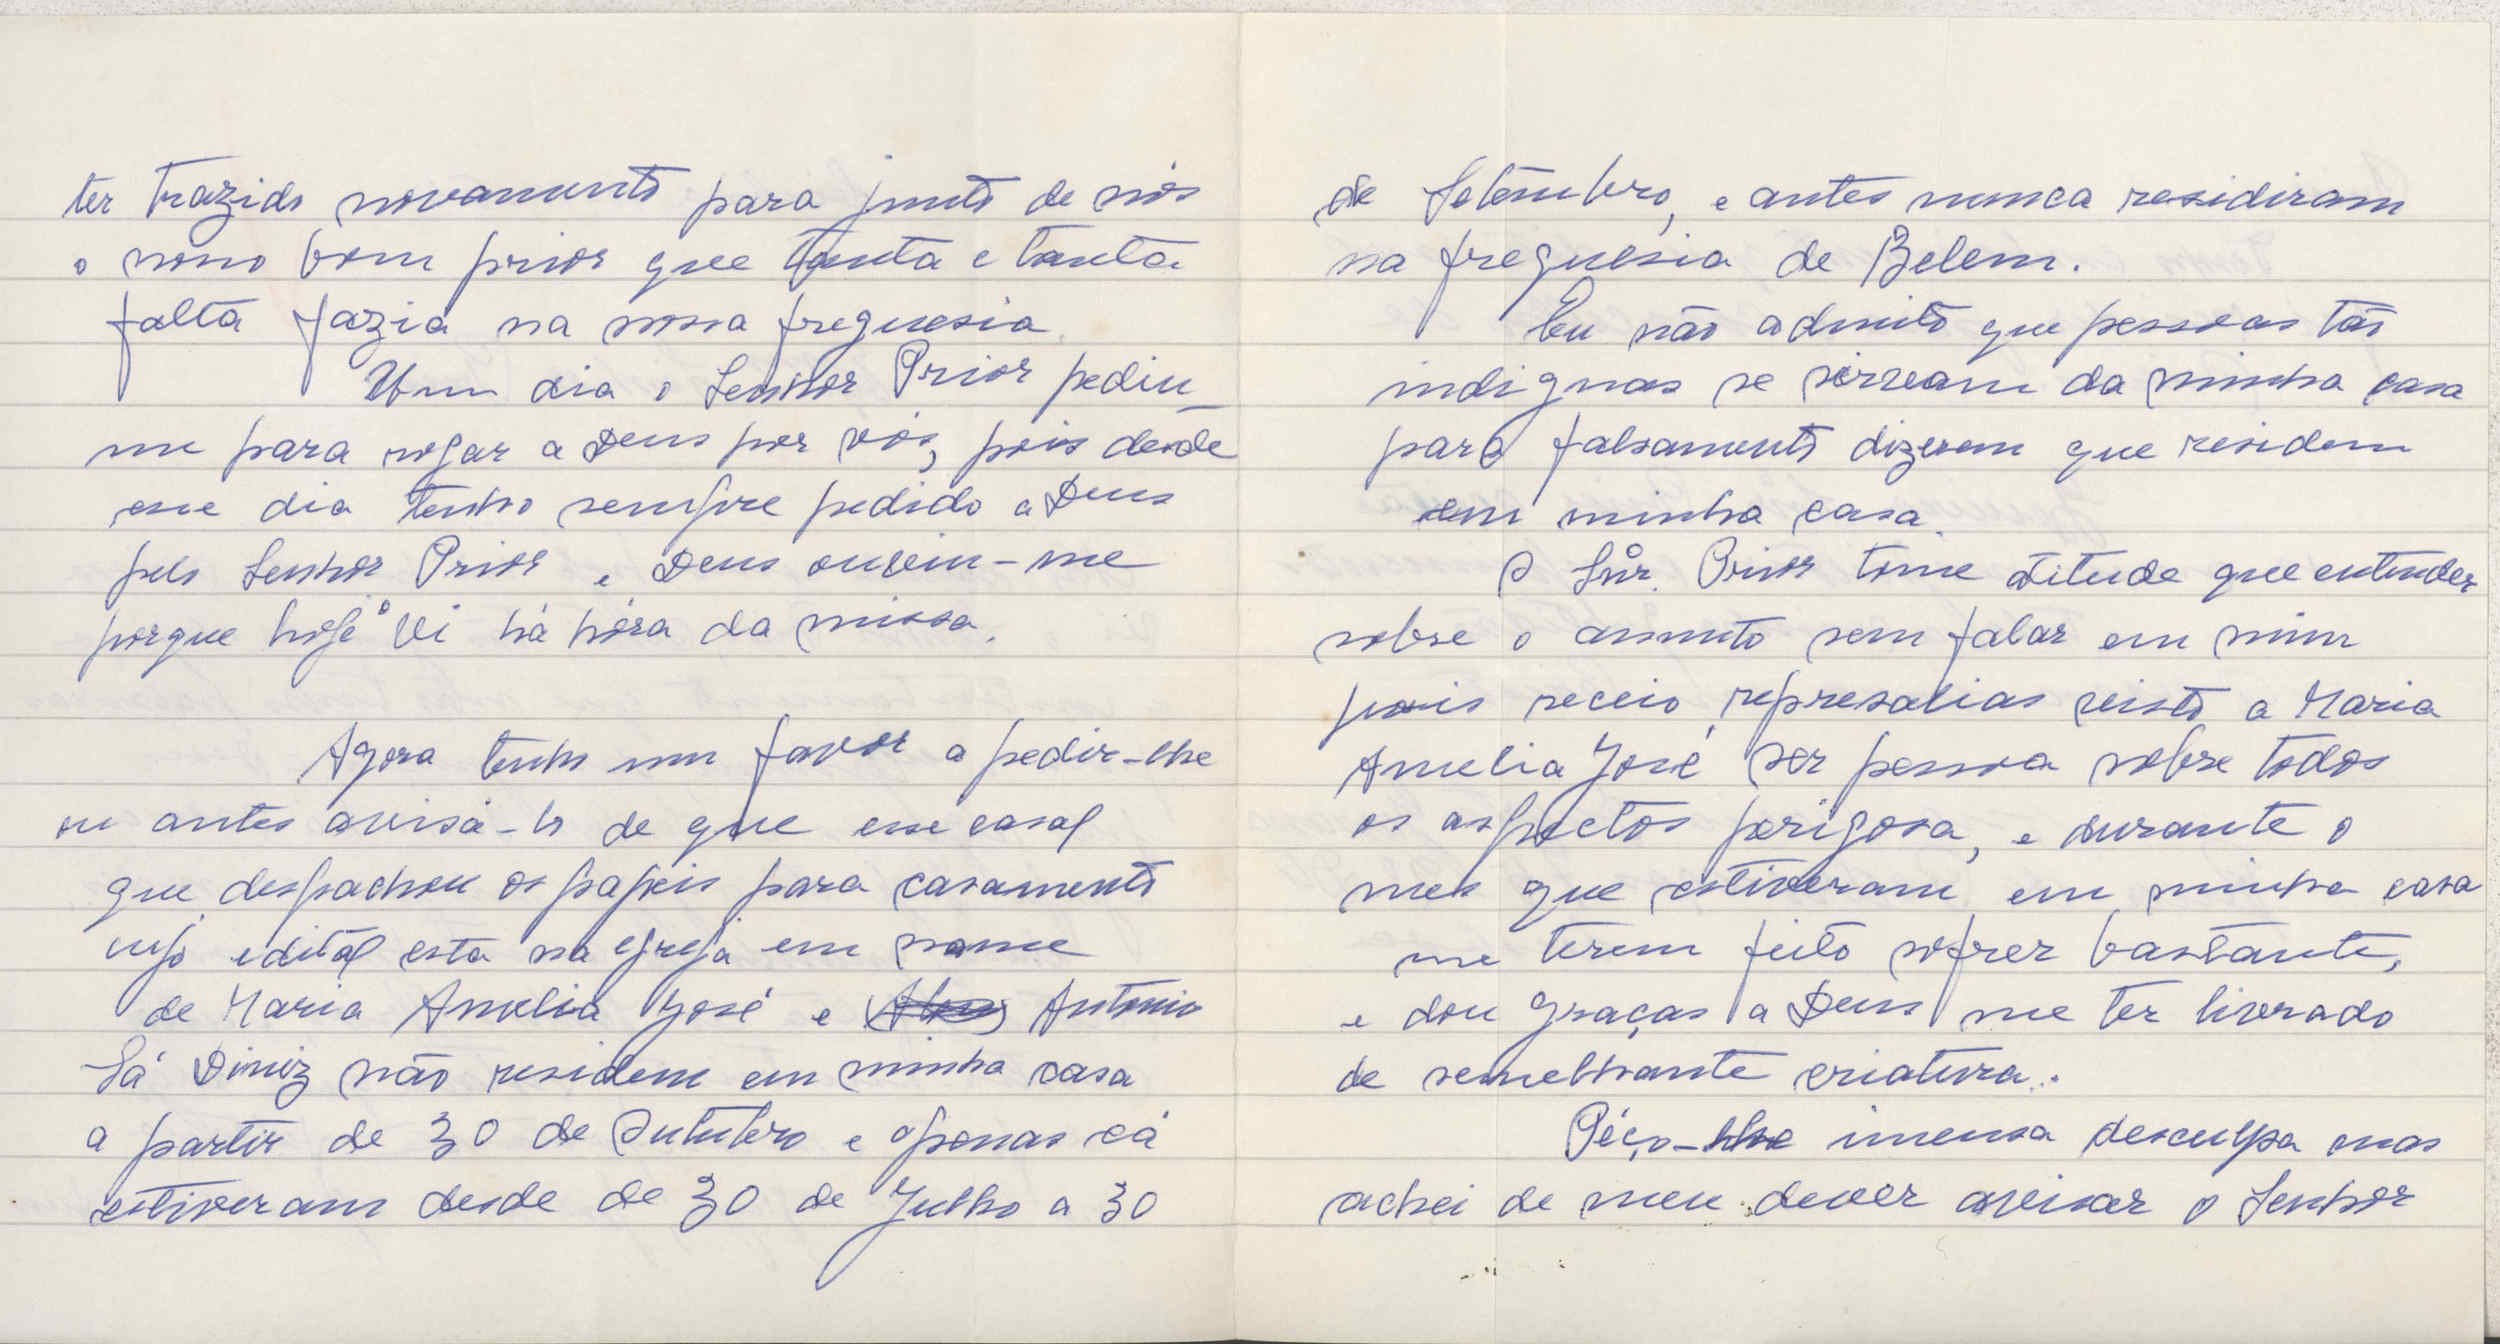 ter trazido novamente para junto de nós
o nosso bom prior que tanta e tanta
falta fazia na nossa freguesia.
Um dia o Senhor Prior pediu-
me para rogar a Deus por vós, pois desde
esse dia tenho sempre pedido a Deus
pelo Senhor Prior e Deus ouviu-me
porque hoje o vi há hóra da missa.
Agora tenho um favor a pedir-lhe
ou antes avisá-lo de que esse casal
que despachou os papeis para casamento
cujo edital esta na egreja em nome
de Maria Amelia José e Antonio
Sá Diniz não residem em minha casa
a partir de 30 de Outubro e apenas cá
estiveram desde de 30 de Julho a 30
de Setembro, e antes nunca residiram
na freguesia de Belem.
Eu não admito que pessoas tão
indignas se sirvam da minha casa
para falsamente dizerem que residem
em minha casa.
O Snr. Prior tome atitude que entender
sobre o assunto sem falar em mim
pois receio represalias visto a Maria
Amelia José ser pessoa sobre todos
os aspectos perigosa, e durante o
mes que estiveram em minha casa
me terem feito sofrer bastante,
e dou graças a Deus me ter livrado
de semelhante criatura.
Péço-lhe imensa desculpa mas
achei de meu dever avisar o Senhor